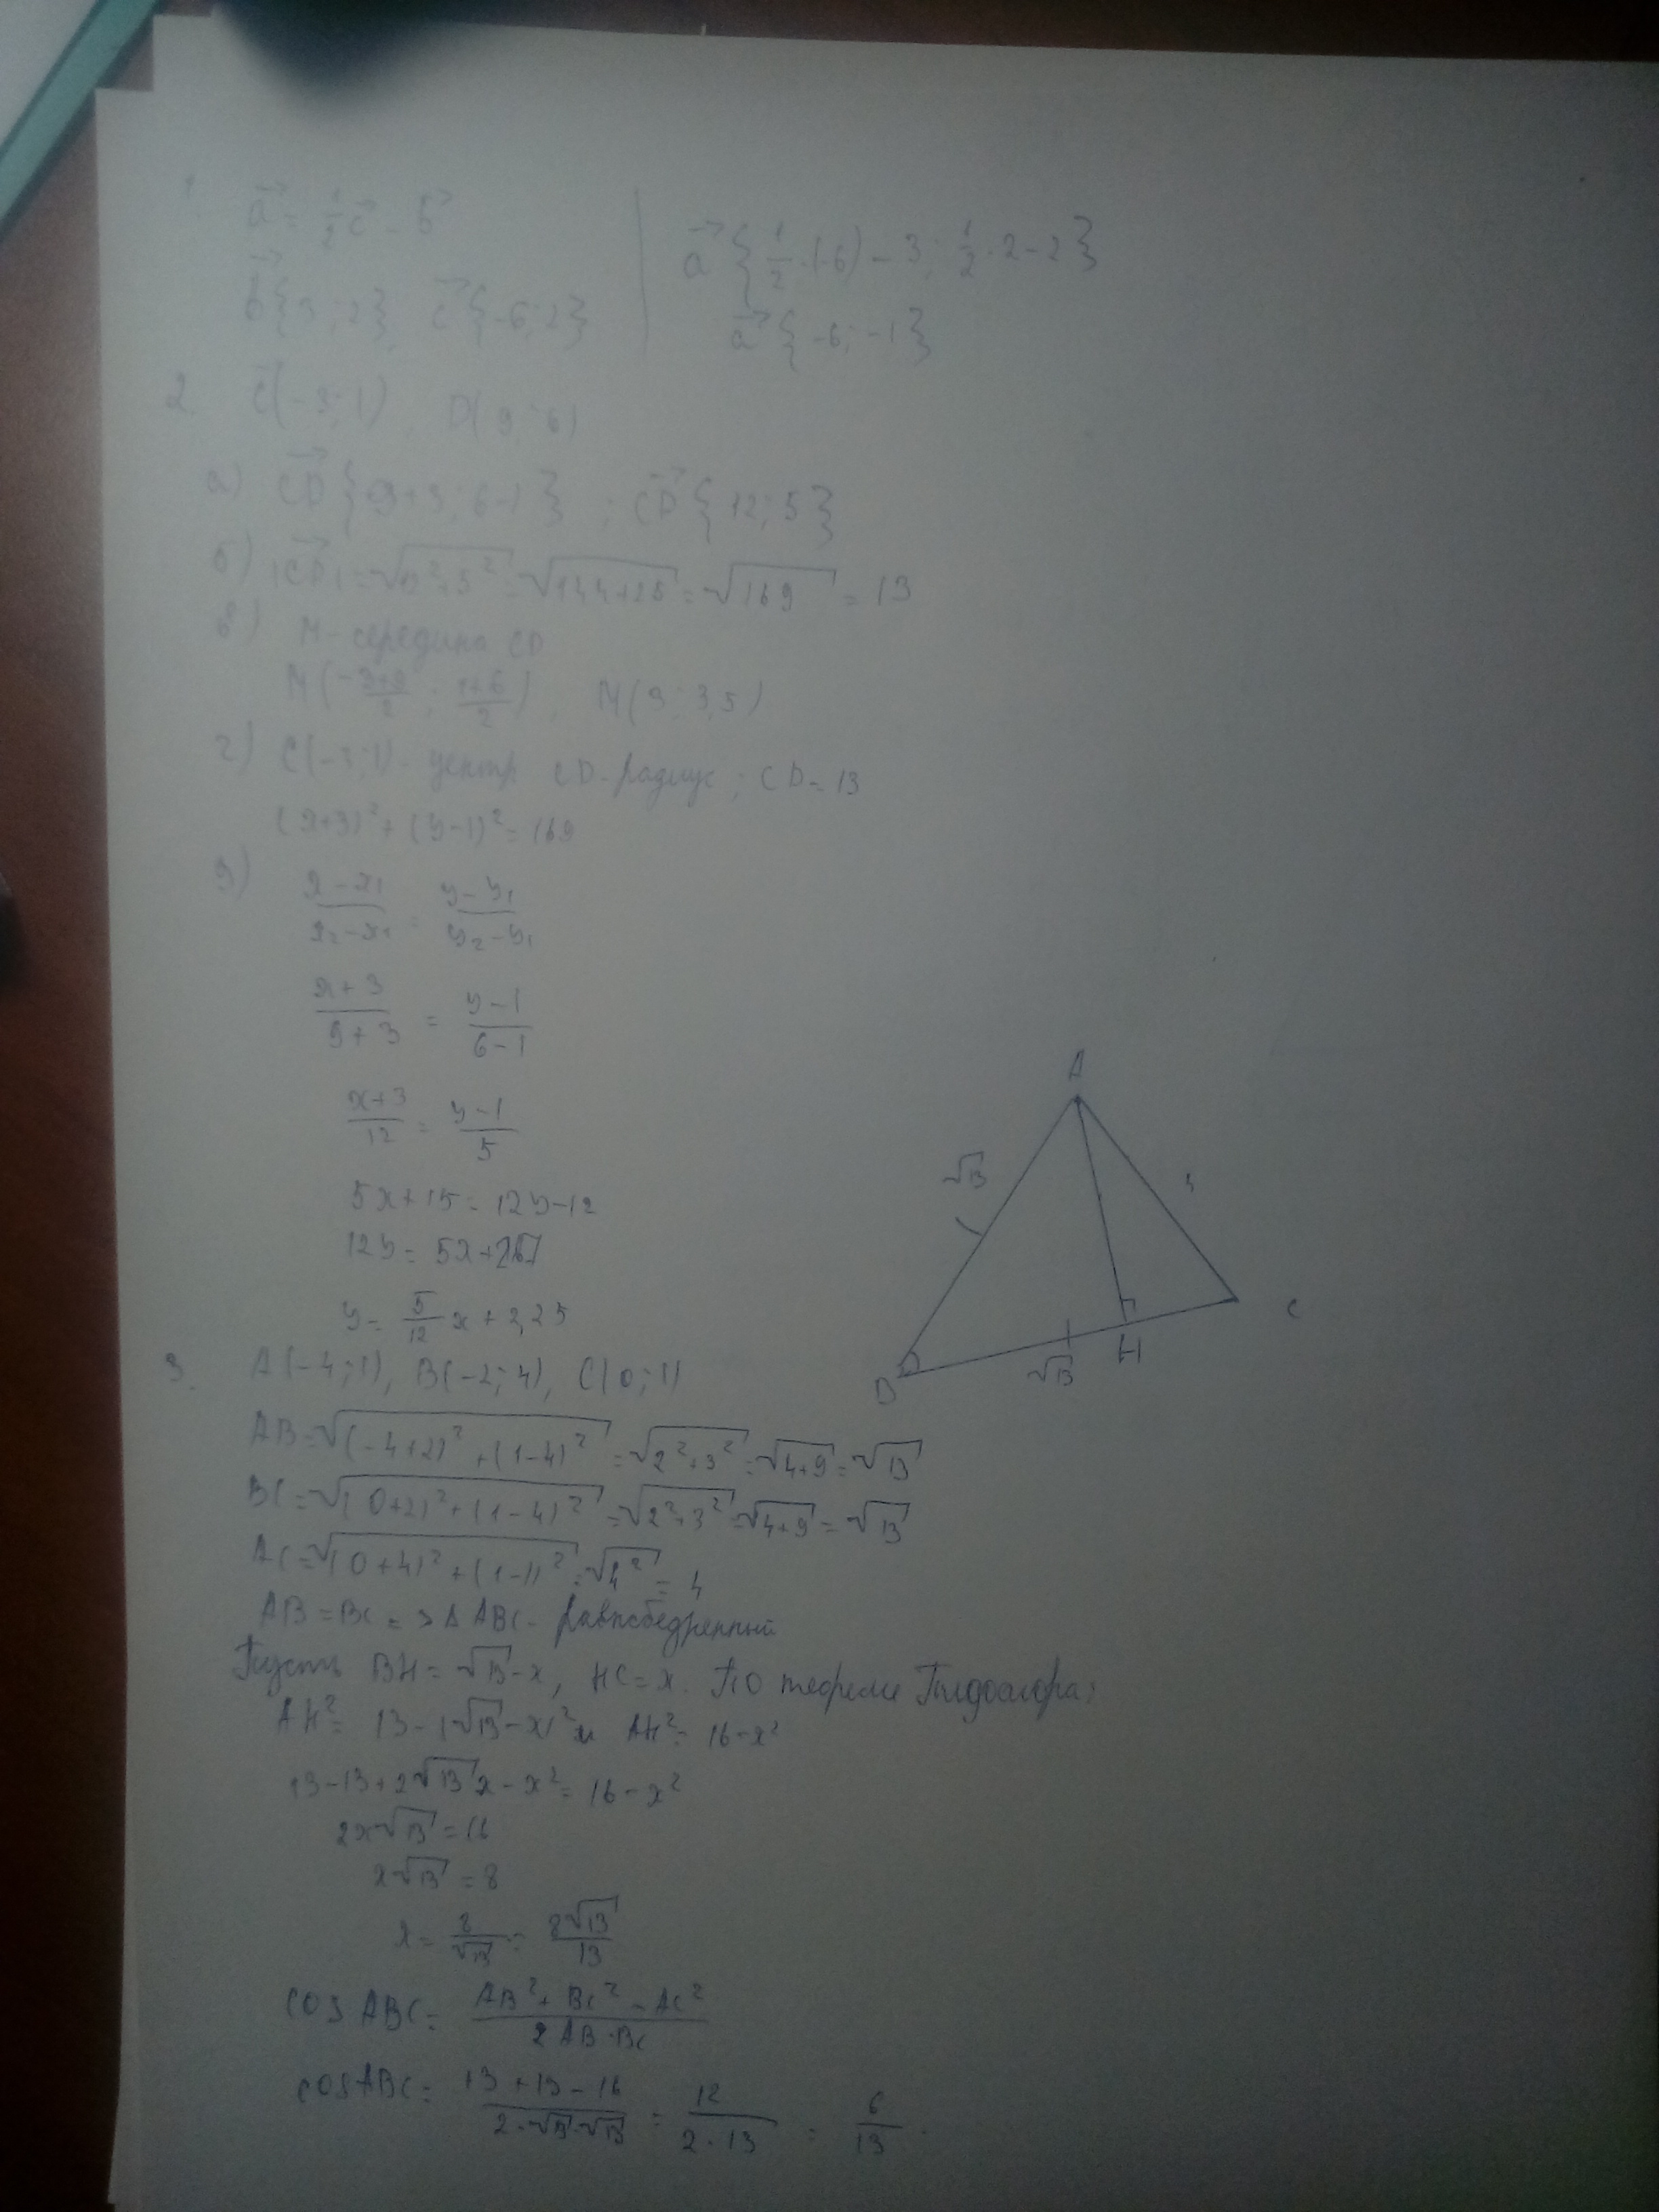 1. a⃗ = 1/2 c⃗ - b⃗
b⃗{3; 2}, c⃗{-6; 2}
a⃗{1/2·(-6) - 3; 1/2·2 - 2}
a⃗{-6; -1}
2. C(-3; 1), D(9; 6)
а) CD⃗{9+3; 6-1}; CD⃗{12; 5}
б) |CD⃗| = √(12²+5²) = √(144+25) = √169 = 13
в) M - середина CD
M((-3+9)/2; (1+6)/2), M(3; 3,5)
г) C(-3; 1) - центр CD - радиус; CD = 13
(x+3)² + (y-1)² = 169
д) (x-x₁)/(x₂-x₁) = (y-y₁)/(y₂-y₁)
(x+3)/(9+3) = (y-1)/(6-1)
(x+3)/12 = (y-1)/5
5x+15 = 12y-12
12y = 5x+27
y = 5/12 x + 2,25
A
√13
4
C
H
B
√13
3. A(-4; 1), B(-2; 4), C(0; 1)
AB = √((-4+2)² + (1-4)²) = √(2²+3²) = √(4+9) = √13
BC = √((0+2)² + (1-4)²) = √(2²+3²) = √(4+9) = √13
AC = √((0+4)² + (1-1)²) = √(4²) = 4
AB = BC => Δ ABC - равнобедренный
Пусть BH = √13 - x, HC = x. По теореме Пифагора:
AH² = 13 - (√13 - x)² и AH² = 16 - x²
13 - 13 + 2√13 x - x² = 16 - x²
2x√13 = 16
x√13 = 8
x = 8/√13 = 8√13/13
cos ABC = (AB² + BC² - AC²)/(2 AB·BC)
cos ABC = (13+13-16)/(2·√13·√13) = 12/(2·13) = 6/13.